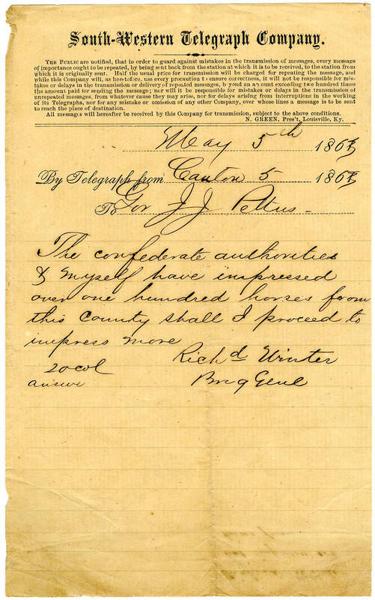 South-Western Telegraph Company.
THE PUBLIC are notified, that in order to guard against mistakes in the transmission of messages, every message
of importance ought to be repeated, by being sent back from the station at which it is to be received, to the station from
which it is originally sent. Half the usual price for transmission will be charged for repeating the message, and
while this Company will, as heretofore, use every precaution to ensure correctness, it will not be responsible for mis-
takes or delays in the transmission or delivery of repeated messages, beyond an amount exceeding two hundred times
the amount paid for sending the message; nor will it be responsible for mistakes or delays in the transmission of
unrepeated messages, from whatever cause they may arise, nor for delays arising from interruptions in the working
of its Telegraphs, nor for any mistake or omission of any other Company, over whose lines a message is to be sent
to reach the place of destination.
All messages will hereafter be received by this Company for transmission, subject to the above conditions.
N. GREEN, Pres't, Louisville, Ky.
May 5th 1863
By Telegraph from Canton 5 1863
To Gov J J Pettus
The confederate authorities
& myself have impressed
over one hundred horses from
this county shall I proceed to
impress more
20 col Richd Winter
answer Brig Genl